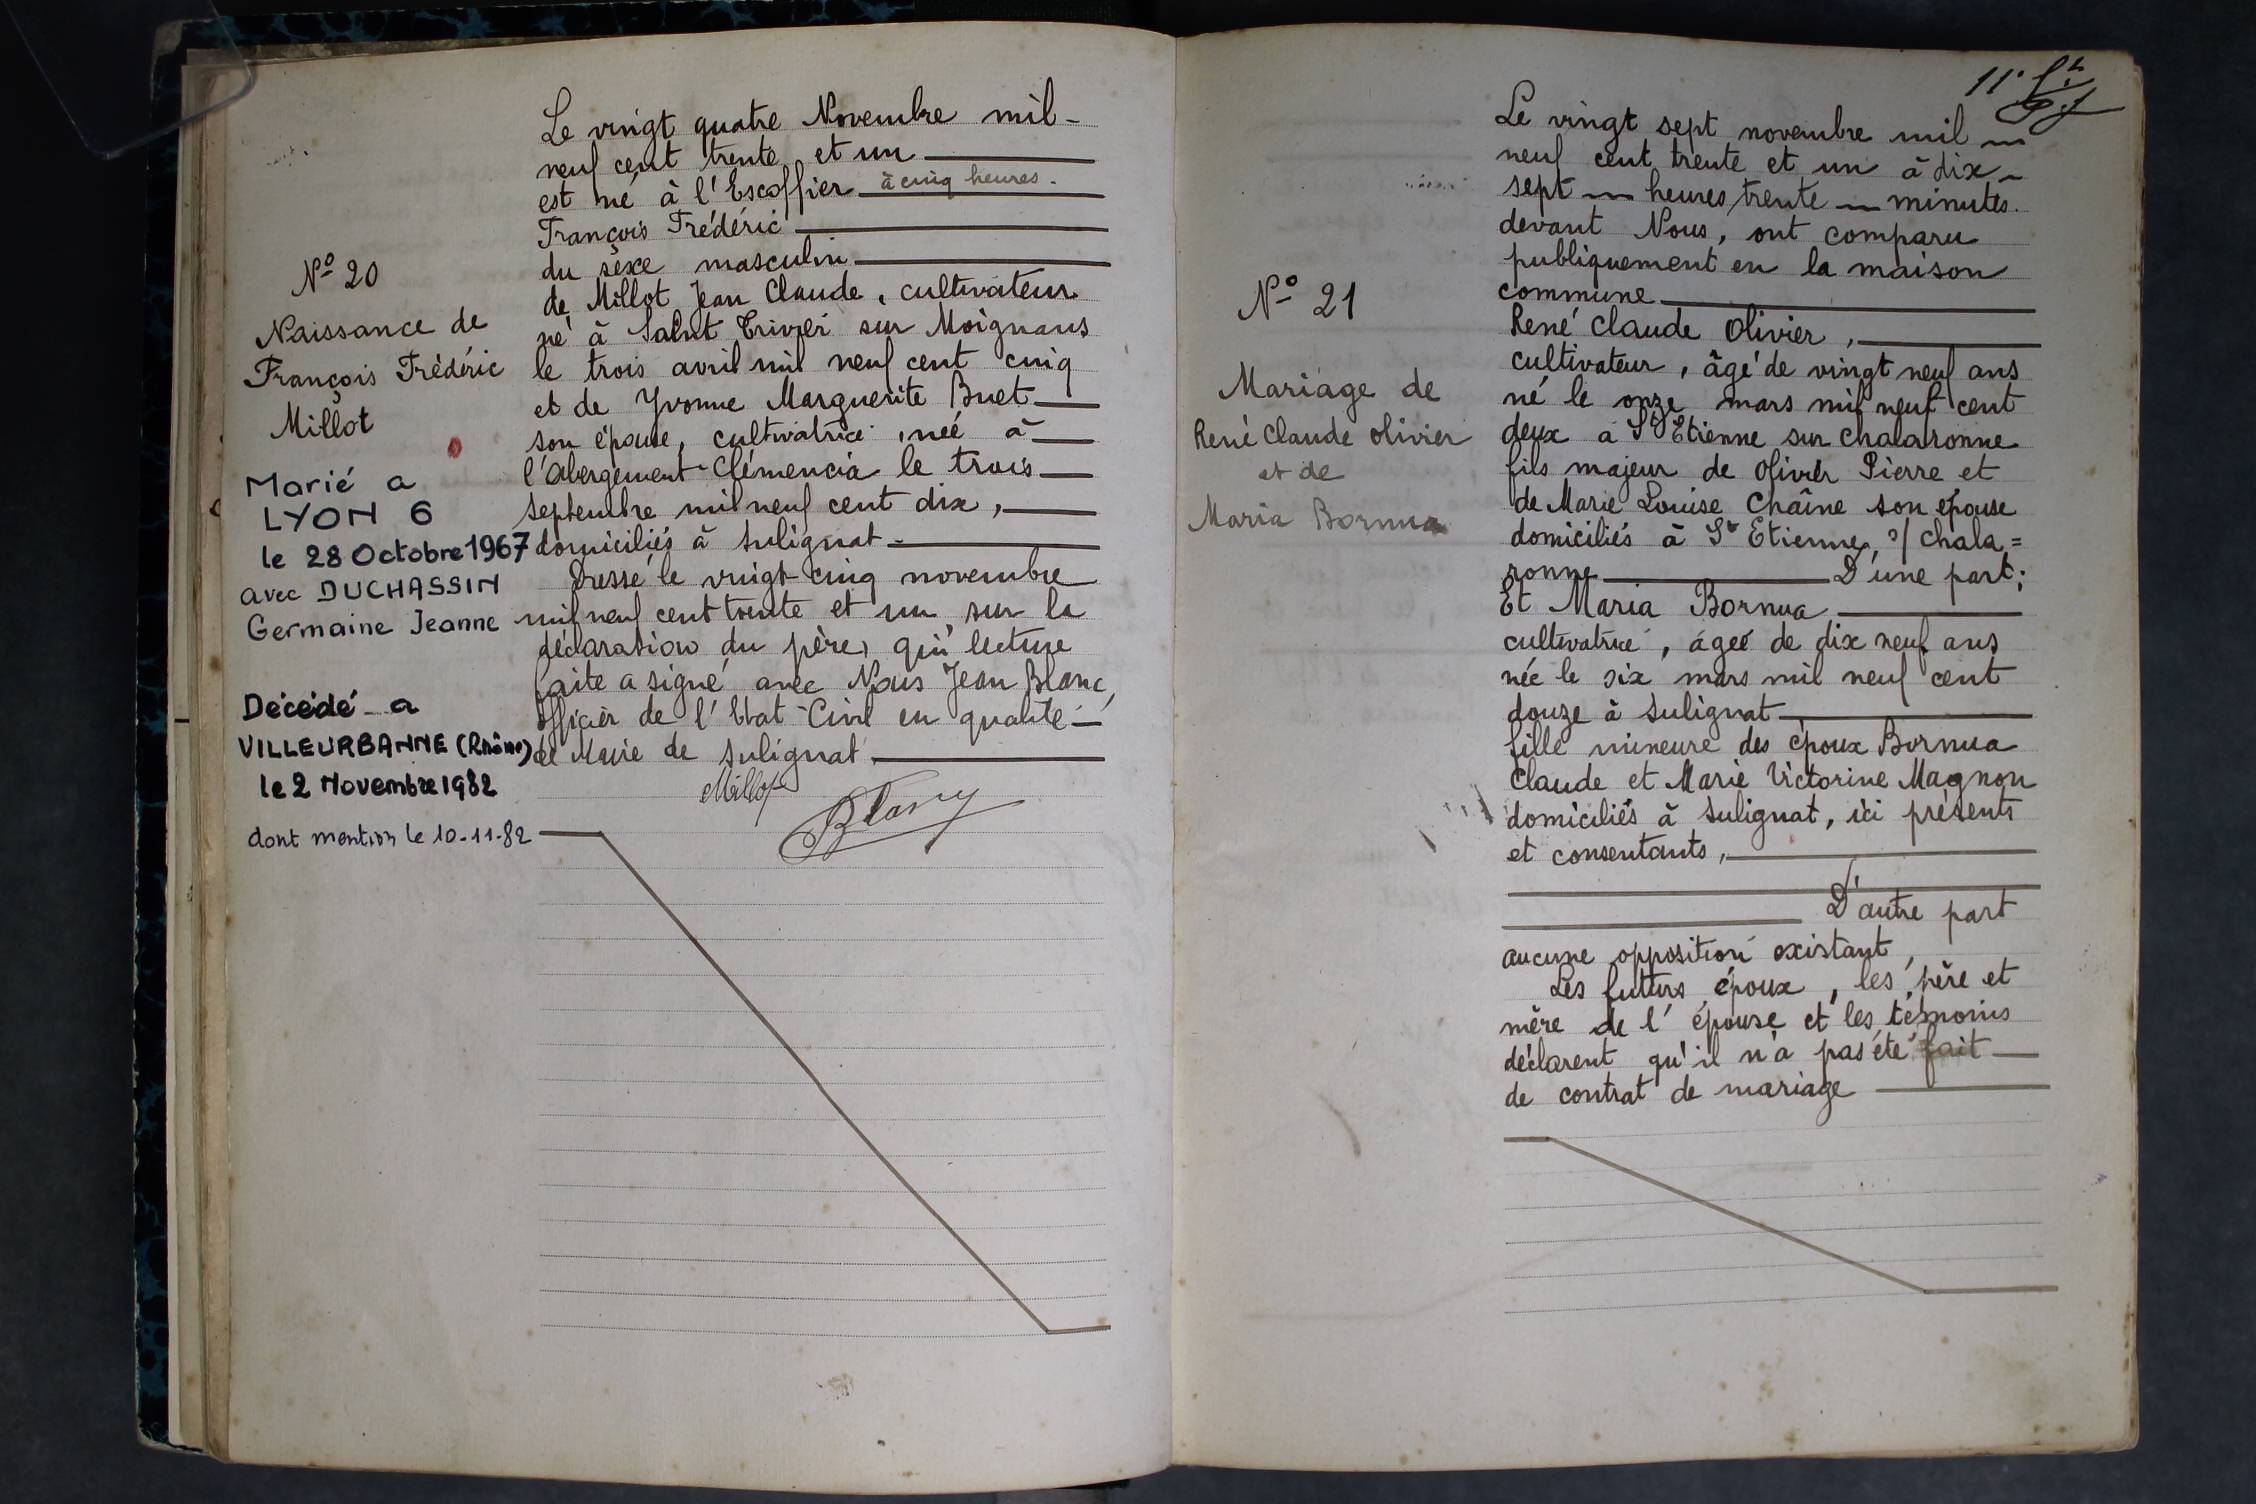 Le vingt quatre Novembre mil-
neuf cent trente et un
est né à l'Escoffier à cinq heures.
François Frédéric
du sexe masculin
de Millot Jean Claude, cultivateur
né à Saint Trivier sur Moignans
le trois avril mil neuf cent cinq
et de Yvonne Marguerite Buet
son épouse, cultivatrice, née à
l'Abergement-Clémencia le trois
septembre mil neuf cent dix,
domiciliés à Sulignat
Dressé le vingt-cinq novembre
mil neuf cent trente et un, sur la
déclaration du père, qui lecture
faite a signé avec Nous Jean Blanc,
officier de l'Etat-Civil en qualité
de Maire de Sulignat.
Millot
Blanc
N° 20
Naissance de
François Frédéric
Millot
Marié a
LYON 6
le 28 Octobre 1967
avec DUCHASSIN
Germaine Jeanne
Décédé a
VILLEURBANNE (Rhône)
le 2 Novembre 1982
dont mention le 10-11-82
11e
Le vingt sept novembre mil
neuf cent trente et un à dix
sept heures trente minutes.
devant Nous, ont comparu
publiquement en la maison
commune
René Claude Olivier,
cultivateur, âgé de vingt neuf ans
né le onze mars mil neuf cent
deux à St Etienne sur Chalaronne
fils majeur de Olivier Pierre et
de Marie Louise Chaîne son épouse
domiciliés à St Etienne s/ Chala=
ronne D'une part;
Et Maria Bornua
cultivatrice, âgée de dix neuf ans
née le six mars mil neuf cent
douze à Sulignat
fille mineure des époux Bornua
Claude et Marie Victorine Magnon
domiciliés à Sulignat, ici présents
et consentants,
D'autre part
aucune opposition existant,
Les futurs époux, les père et
mère de l'épouse et les témoins
déclarent qu'il n'a pas été fait
de contrat de mariage
N° 21
Mariage de
René Claude Olivier
et de
Maria Bornua